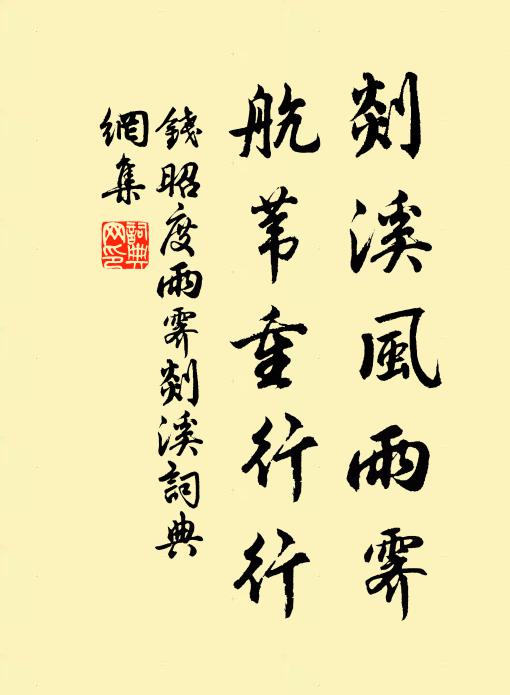 剡溪風雨霽
航葦重行行
錢昭度雨霽剡溪詞典
網集
詞典
网印